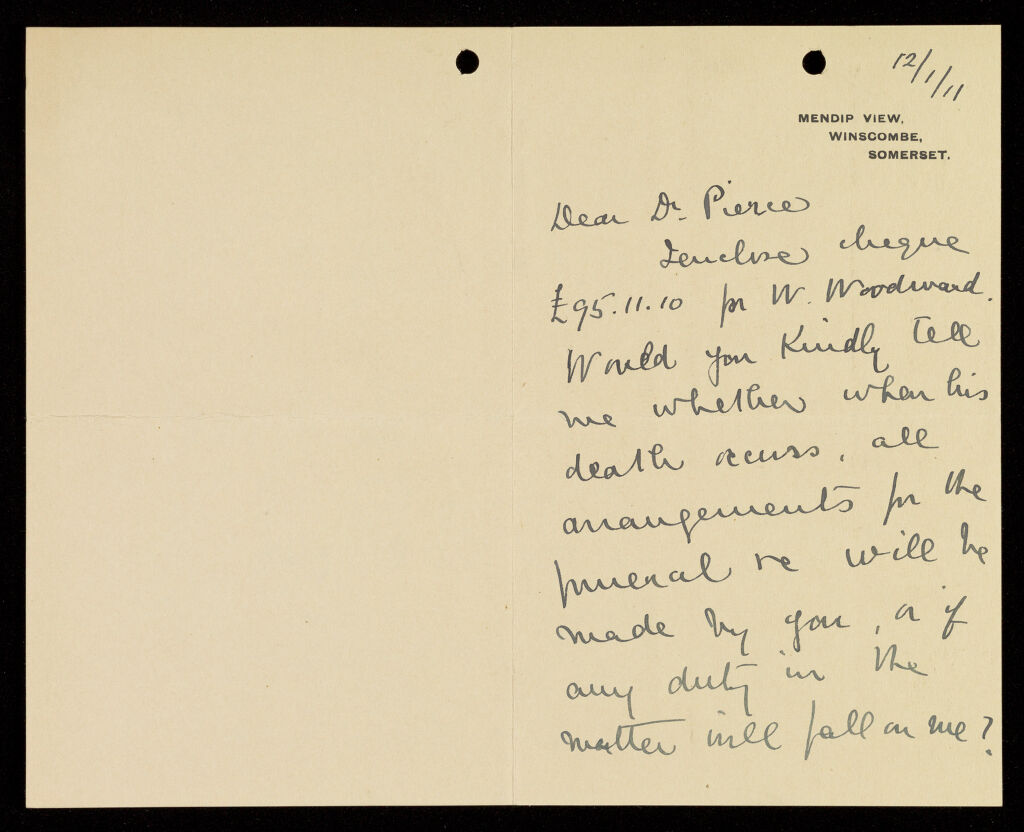 12/1/11
MENDIP VIEW,
WINSCOMBE,
SOMERSET.
Dear Dr. Pierce
I enclose cheque
£95.11.10 for W. Woodward.
Would you Kindly tell
me whether when his
death occurs, all
arrangements for the
funeral &c will be
made by you, or if
any duty in the
matter will fall on me?